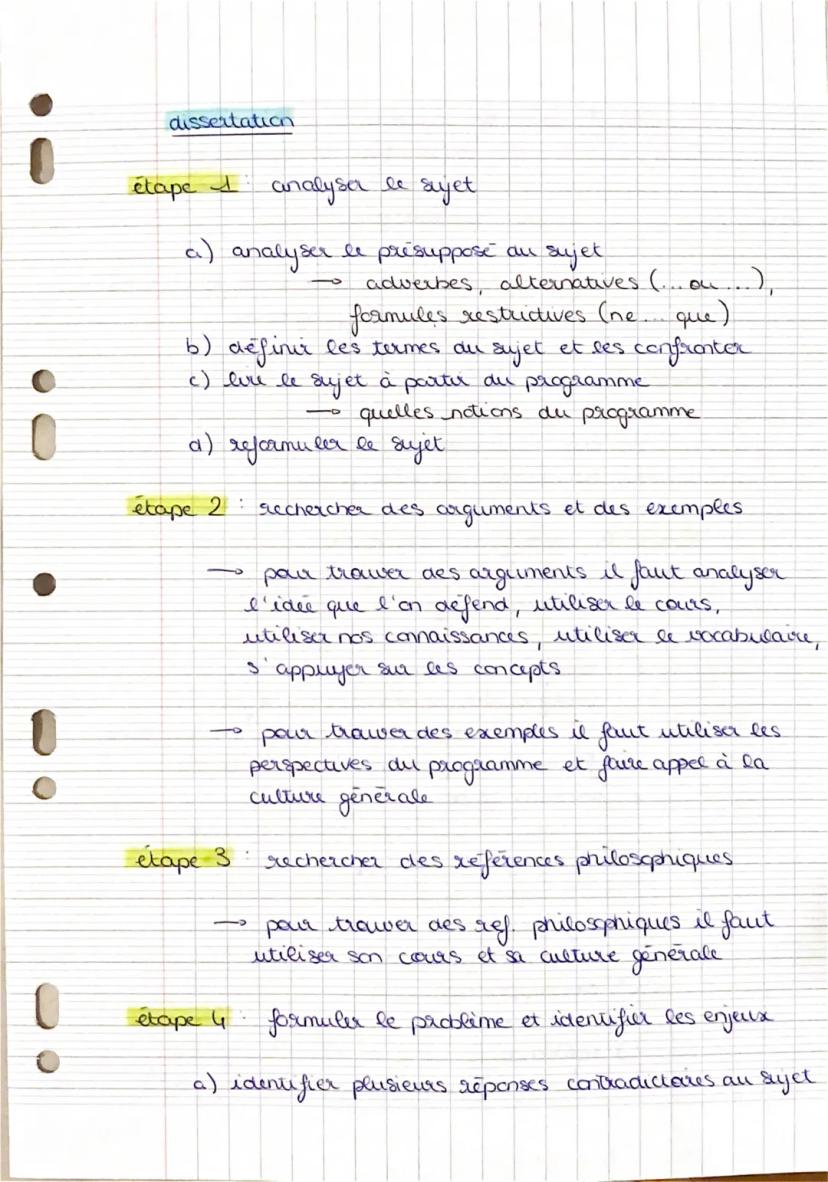 dissertation
étape 1 : analyser le sujet
a) analyser le présupposé du sujet
→ adverbes, alternatives (... ou ...),
formules restrictives (ne ... que)
b) définir les termes du sujet et les confronter
c) lire le sujet à partir du programme
→ quelles notions du programme
d) reformuler le sujet
étape 2 : rechercher des arguments et des exemples
→ pour trouver des arguments il faut analyser
l'idée que l'on défend, utiliser le cours,
utiliser nos connaissances, utiliser le vocabulaire,
s'appuyer sur les concepts
→ pour trouver des exemples il faut utiliser les
perspectives du programme et faire appel à la
culture générale
étape 3 : rechercher des références philosophiques
→ pour trouver des ref. philosophiques il faut
utiliser son cours et sa culture générale
étape 4 : formuler le problème et identifier les enjeux
a) identifier plusieurs réponses contradictoires au sujet